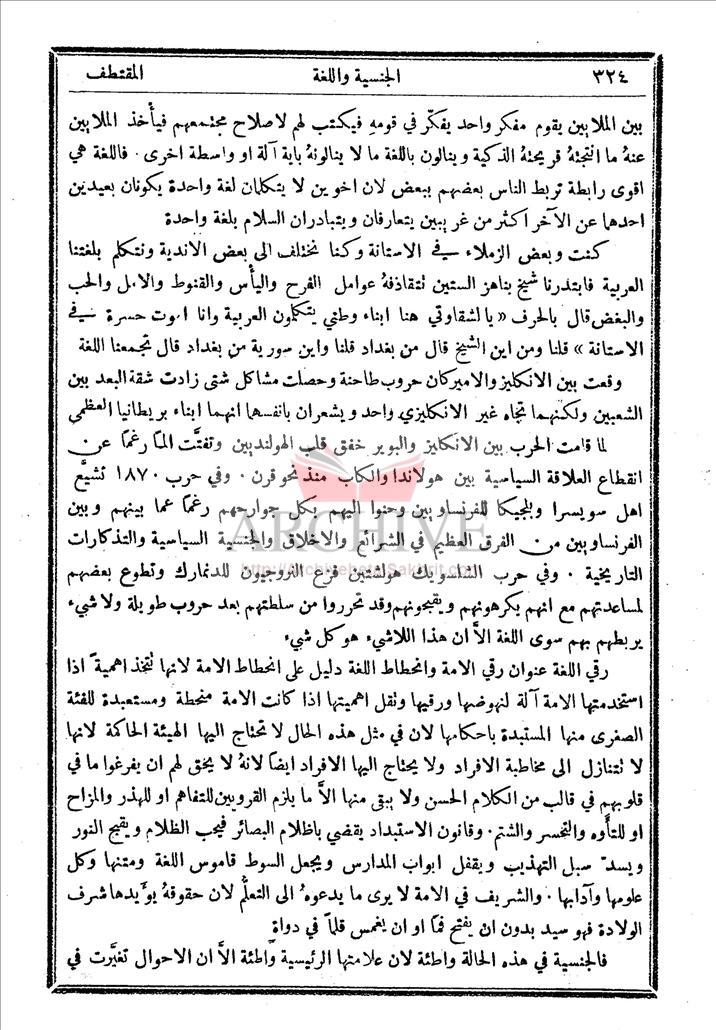 ٣٢٤ الجنسية واللغة المقتطف
بين الملايين يقوم مفكر واحد يفكّر في قومهِ فيكتب لهم لاصلاح مجتمعهم فيأخذ الملايين
عنهُ ما انتجتهُ قريحتهُ الذكية وينالون باللغة ما لا ينالونهُ باية آلة او واسطة اخرى . فاللغة هي
اقوى رابطة تربط الناس بعضهم ببعض لان اخوين لا يتكلمان لغة واحدة يكونان بعيدين
احدها عن الآخر اكثر من غريبين يتعارفان ويتبادران السلام بلغة واحدة
كنت وبعض الزملاء في الاستانة وكنا نختلف الى بعض الاندية ونتكلم بلغتنا
العربية فابتدرنا شيخ يناهز الستين تتقاذفهُ عوامل الفرح واليأس والقنوط والامل والحب
والبغض قال بالحرف « يا لشقاوتي هنا ابناء وطني يتكلمون العربية وانا اموت حسرة في
الاستانة » قلنا ومن اين الشيخ قال من بغداد قلنا واين سورية من بغداد قال تجمعنا اللغة
وقعت بين الانكليز والاميركان حروب طاحنة وحصلت مشاكل شتى زادت شقة البعد بين
الشعبين ولكنهما تجاه غير الانكليزي واحد ويشعران بانفسها انهما ابناء بريطانيا العظمى
لما قامت الحرب بين الانكليز والبوير خفق قلب الهولنديين وتفتَّت المًا رغمًا عن
انقطاع العلاقة السياسية بين هولاندا والكاب منذ نحو قرن . وفي حرب ١٨٧٠ تشيَّع
اهل سويسرا وبلجيكا للفرنساويين وحنوا اليهم بكل جوارحهم رغمًا عما بينهم وبين
الفرنساويين من الفرق العظيم في الشرائع والاخلاق والجنسية السياسية والتذكارات
التاريخية . وفي حرب الشلسويك هولشتين فزع النروجيون للدنمارك وتطوع بعضهم
لمساعدتهم مع انهم يكرهونهم ويقبحونهم وقد تحرروا من سلطتهم بعد حروب طويلة ولا شيء
يربطهم بهم سوى اللغة الاَّ ان هذا اللاشيء هو كل شيء
رقي اللغة عنوان رقي الامة وانحطاط اللغة دليل على انحطاط الامة لانها تتخذ اهمية اذا
استخدمتها الامة آلة لنهوضها ورقيها وتقل اهميتها اذا كانت الامة منحطة ومستعبدة للفئة
الصغرى منها المستبدة باحكامها لان في مثل هذه الحال لا تحتاج اليها الهيئة الحاكمة لانها
لا تتنازل الى مخاطبة الافراد ولا يحتاج اليها الافراد ايضًا لانهُ لا يحق لهم ان يفرغوا ما في
قلوبهم في قالب من الكلام الحسن ولا يبقى منها الاَّ ما يلزم القرويين للتفاهم او للهذر والمزاح
او للتأَوه والتحسر والشتم. وقانون الاستبداد يقضي باظلام البصائر فيحب الظلام ويقبح النور
ويسدّ سبل التهذيب ويقفل ابواب المدارس ويجعل السوط قاموس اللغة ومتنها وكل
علومها وآدابها . والشريف في الامة لا يرى ما يدعوهُ الى التعلُّم لان حقوقهُ يوَيدها شرف
الولادة فهو سيد بدون ان يفتح فمًا او ان يغمس قلمًا في دواة
فالجنسية في هذه الحالة واطئة لان علامتها الرئيسية واطئة الاَّ ان الاحوال تغيَّرت في
ARCHIVE
http://Archivebeta.Sakhrit.com